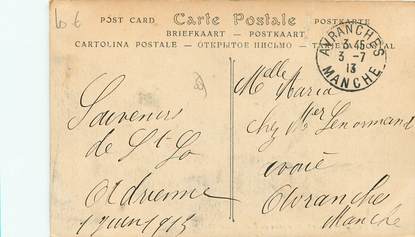 10 €
POST CARD Carte Postale POSTKARTE
BRIEFKAART - POSTKAART
CARTOLINA POSTALE - ОТКРЫТОЕ ПИСЬМО
AVRANCHES
3-7
13
MANCHE
Souvenirs
de St-Lo
Adrienne
1 Juin 1913
Melle Maria
chez Mer Lenormand
Avranches
Manche